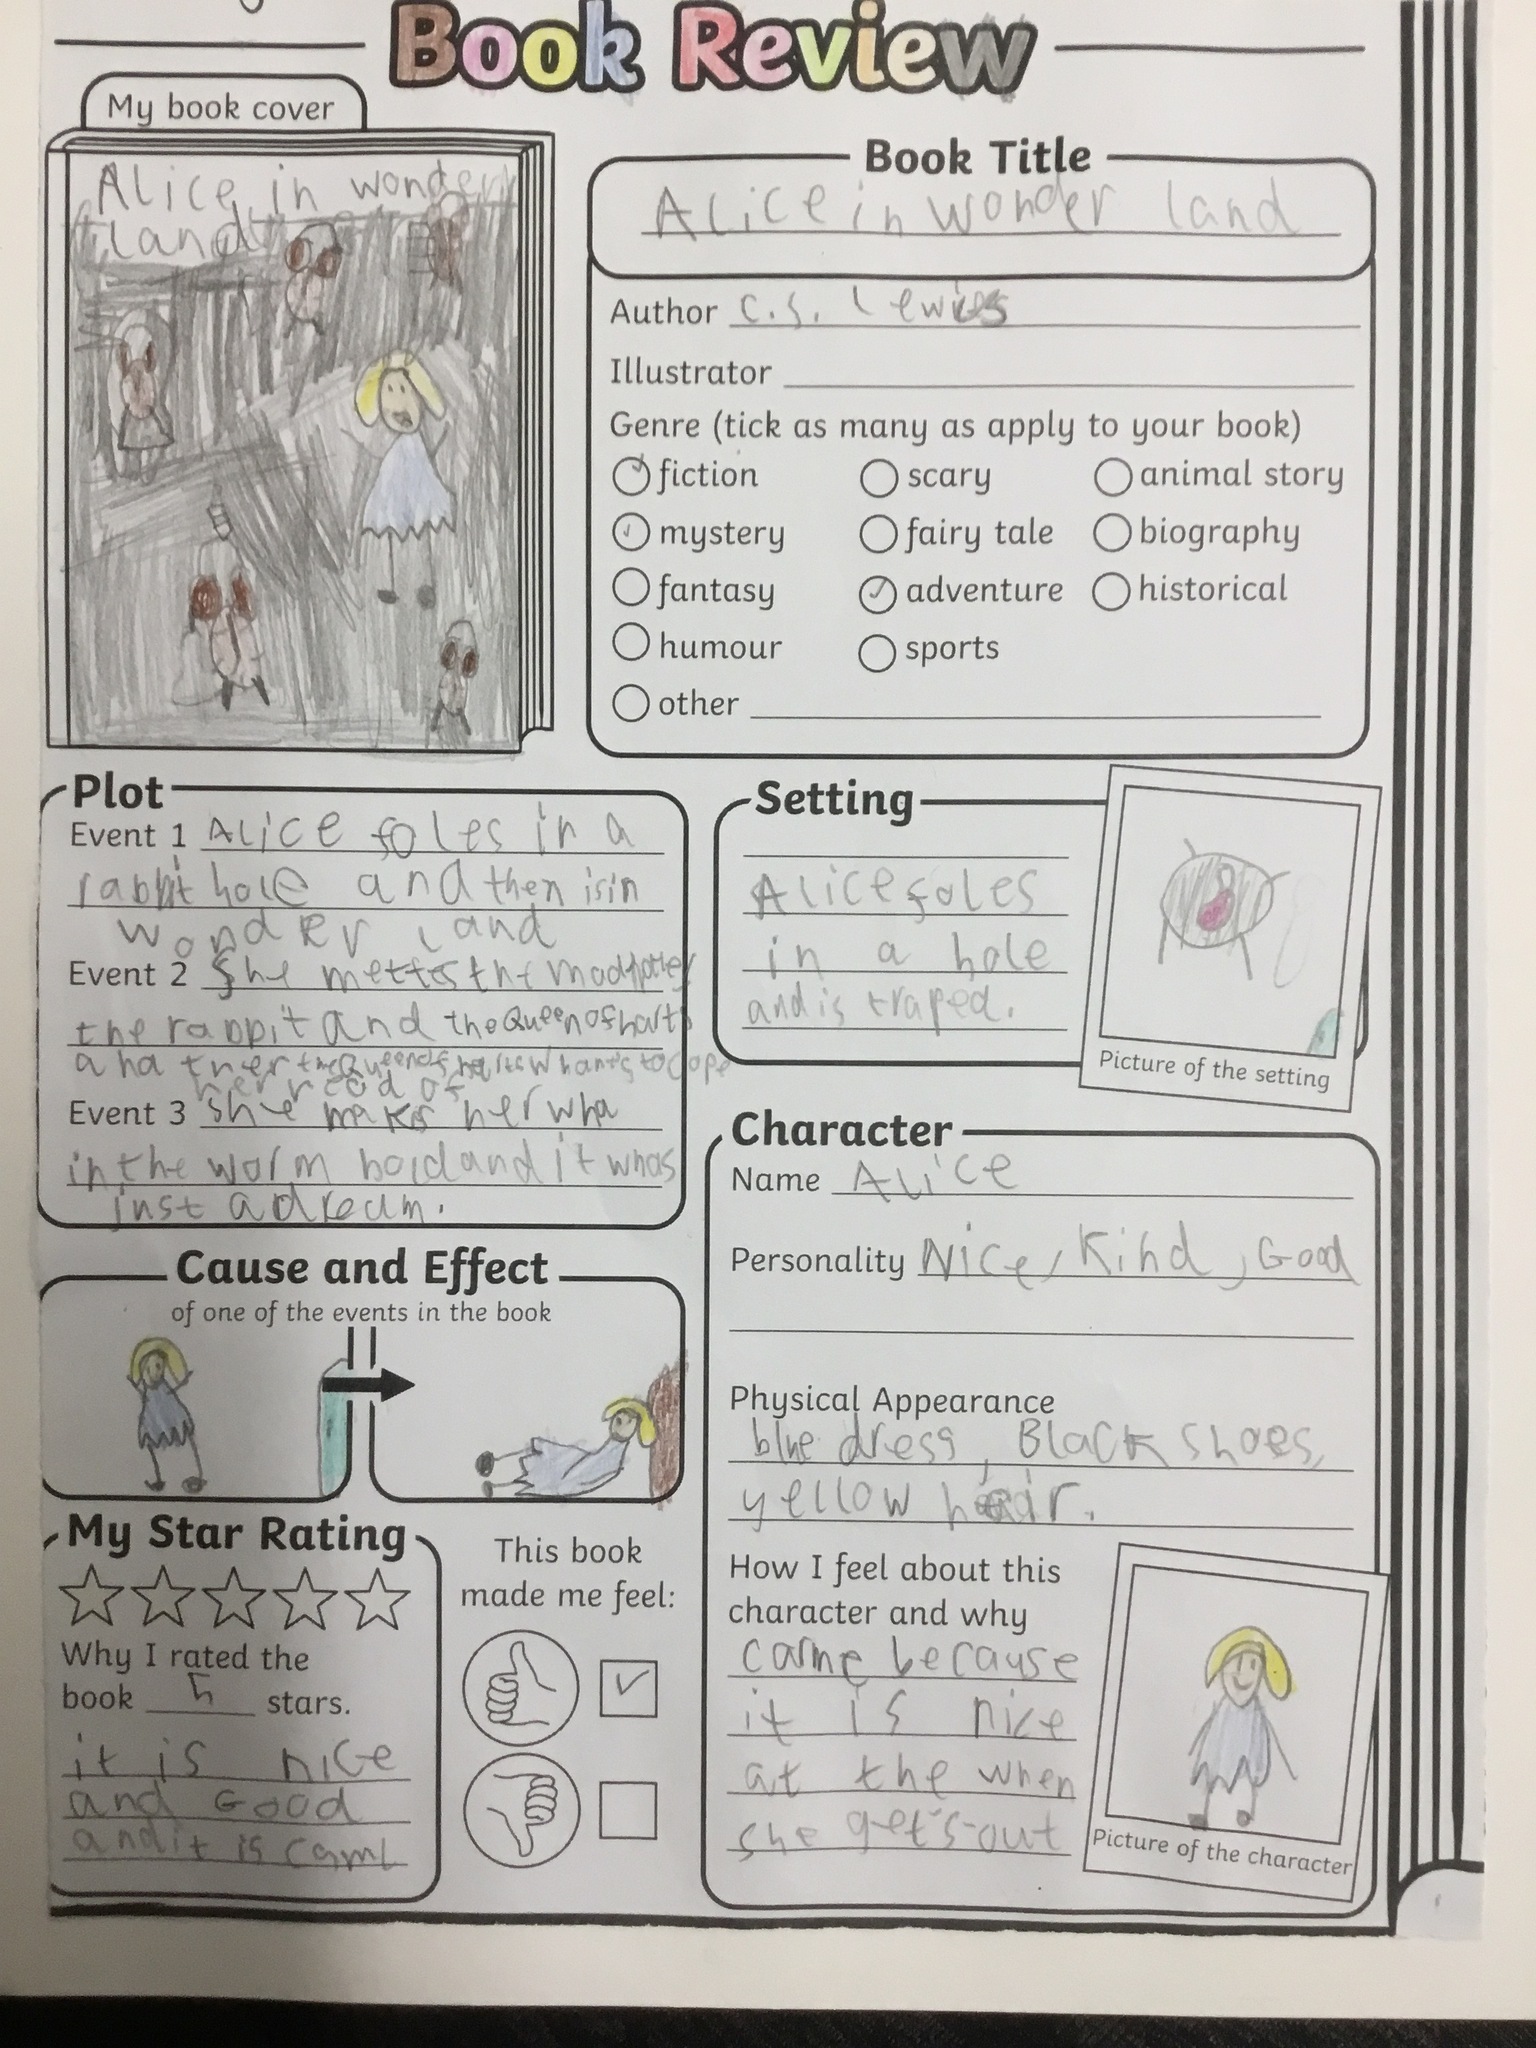 Book Review
My book cover
Alice in wonder
land
Book Title
Alice in wonder land
Author c.s. Lewis
Illustrator
Genre (tick as many as apply to your book)
fiction
scary
animal story
mystery
fairy tale
biography
fantasy
adventure
historical
humour
sports
other
Plot
Event 1 Alice foles in a
rabbit hole and then is in
wonder land
Event 2 She mettes the madhatter
the rabbit and the Queen of harts
and then the Queen of harts whants to
her head of
Event 3 she makes her wha
in the worm hold and it whas
just a dream.
Setting
Alice foles
in a hole
and is traped.
Picture of the setting
Character
Name Alice
Personality Nice, Kind, Good
Physical Appearance
blue dress, Black shoes,
yellow hair.
How I feel about this
character and why
came because
it is nice
at the when
she get's out
Picture of the character
Cause and Effect
of one of the events in the book
My Star Rating
Why I rated the
book 5 stars.
it is nice
and Good
and it is
This book
made me feel: